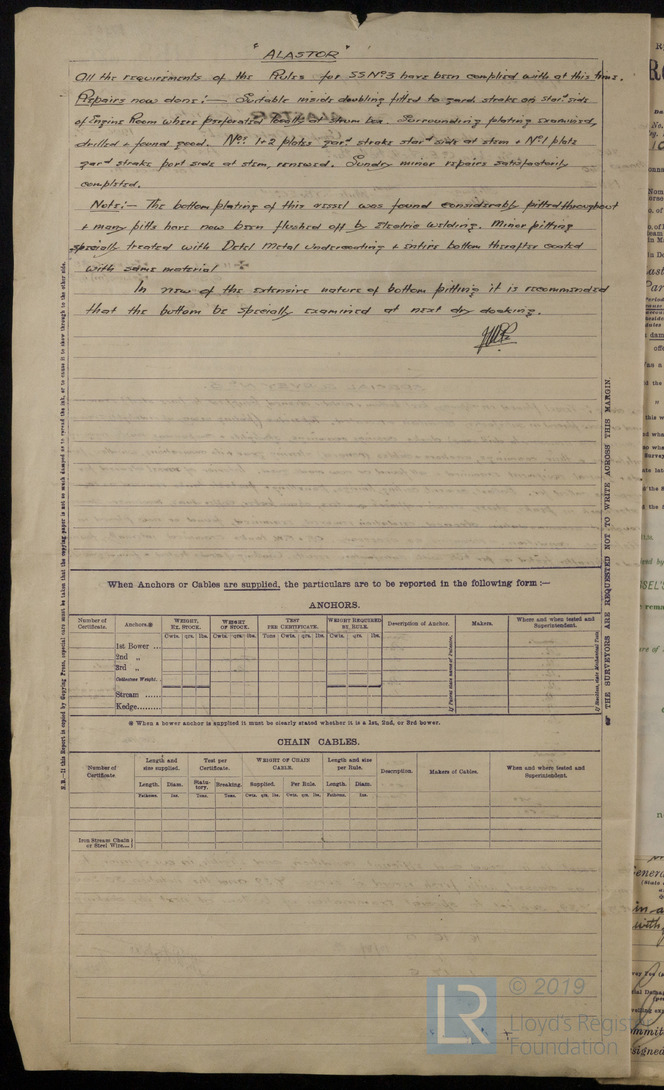 "ALASTOR"
All the requirements of the Rules for SS No 3 have been complied with at this time.
Repairs now done:— Suitable inside doubling fitted to gard. strake on starᵈ side
of Engine Room where perforated locally at strum box. Surrounding plating examined,
drilled & found good. Nos. 1+2 plates garᵈ strake starᵈ side at stem & No1 plate
garᵈ strake port side at stem, renewed. Sundry minor repairs satisfactorily
completed.
Note:— The bottom plating of this vessel was found considerably pitted throughout
& many pitts have now been flushed off by Electric welding. Minor pitting
specially treated with Detel Metal Undercoating & entire bottom thereafter coated
with same material
In view of the extensive nature of bottom pitting it is recommended
that the bottom be specially examined at next dry docking.
N.B.—If this Report is copied by Copying Press, especial care must be taken that the copying paper is not so much damped as to reveal the ink, or to cause it to show through to the other side.
THE SURVEYORS ARE REQUESTED NOT TO WRITE ACROSS THIS MARGIN.
When Anchors or Cables are supplied, the particulars are to be reported in the following form :—
ANCHORS.
Number of Certificate. Anchors.※ WEIGHT, EX. STOCK. WEIGHT OF STOCK. TEST PER CERTIFICATE. WEIGHT REQUIRED BY RULE. Description of Anchor. Makers. Where and when tested and Superintendent.
Cwts. qrs. lbs. Cwts. qrs. lbs. Tons Cwts. qrs. lbs. Cwts. qrs. lbs.
1st Bower ...
2nd „
3rd „
Collective Weight.
Stream ......
Kedge.........
※ When a bower anchor is supplied it must be clearly stated whether it is a 1st, 2nd, or 3rd bower.
CHAIN CABLES.
Number of Certificate Length and size supplied. Test per Certificate. WEIGHT OF CHAIN CABLE. Length and size per Rule. Description. Makers of Cables. When and where tested and Superintendent.
Length. Diam. Statutory. Breaking. Supplied. Per Rule. Length. Diam.
Fathoms. Ins. Tons. Tons. Cwts. qrs. lbs. Cwts. qrs. lbs. Fathoms. Ins.
Iron Stream Chain or Steel Wire...
LR
© 2019
Lloyd's Register
Foundation